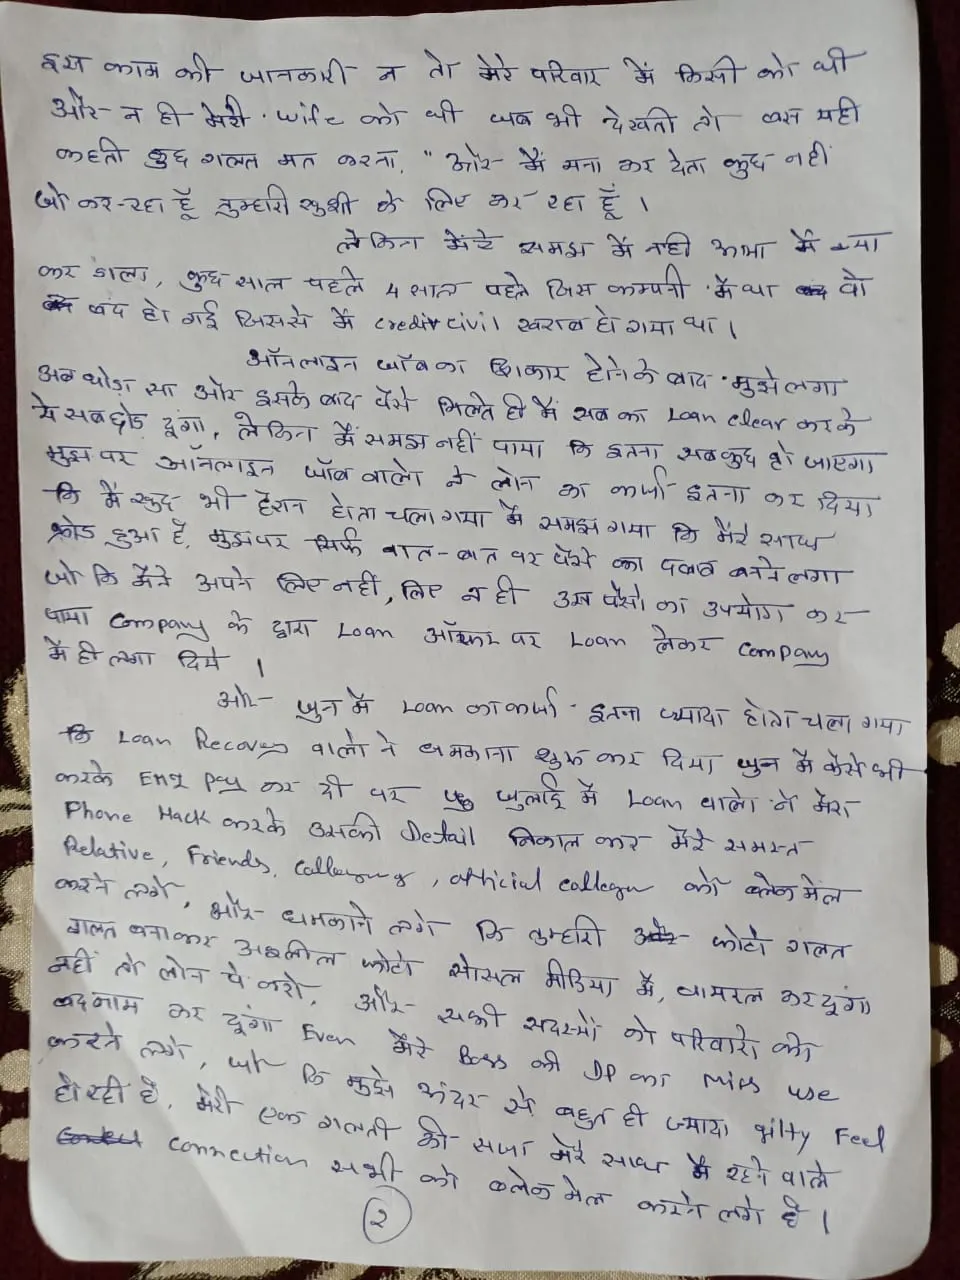 इस काम की जानकारी न तो मेरे परिवार में किसी को थी
और न ही मेरी wife को थी जब भी देखती तो बस यही
कहती कुछ गलत मत करना, "और मैं मना कर देता कुछ नहीं
जो कर रहा हूँ तुम्हारी खुशी के लिए कर रहा हूँ ।
लेकिन मेरे समझ में नही आया मैं क्या
कर डाला, कुछ साल पहले 4 साल पहले जिस कम्पनी में था वो
बंद हो गई जिससे मैं credit civil खराब हो गया था ।
ऑनलाइन जॉब का शिकार होने के बाद मुझे लगा
अब थोड़ा सा और इसके बाद पैसे मिलते ही मैं सब का Loan clear करके
ये सब छोड़ दूंगा, लेकिन मैं समझ नहीं पाया कि इतना सब कुछ हो जाएगा
मुझ पर ऑनलाइन जॉब वालो ने लोन का कर्जा इतना कर दिया
कि मैं खुद भी हैरान होता चला गया मैं समझ गया कि मेरे साथ
फ्रोड हुआ है, मुझपर सिर्फ बात-बात पर पैसे का दबाब बनने लगा
जो कि मैंने अपने लिए नहीं, लिए न ही उन पैसो का उपयोग कर
पाया Company के द्वारा Loan ऑफर पर Loan लेकर Company
में ही लगा दिये ।
और जुन में Loan का कर्जा इतना ज्यादा होता चला गया
कि Loan Recovery वालो ने धमकाना शुरू कर दिया जुन में कैसे भी
करके EMI Pay कर दी पर जुलाई में Loan वालो ने मेरा
Phone Hack करके उसकी Detail निकाल कर मेरे समस्त
Relative, Friends, official collegue को ब्लेकमेल
करने लगे, और धमकाने लगे कि तुम्हारी फोटो गलत
गलत बनाकर अश्लील फोटो सोसल मीडिया में, वायरल कर दूंगा
नहीं तो लोन पे करो, और सभी सदस्यों को परिवारो को
बदनाम कर दूंगा Even मेरे Boss की DP का miss use
करने लगे, कि मुझे अंदर से बहुत ही ज्यादा gilty Feel
हो रही है, मेरी एक गलती की सजा मेरे साथ में रहने वाले
connection सभी को ब्लेकमेल करने लगे है ।
२